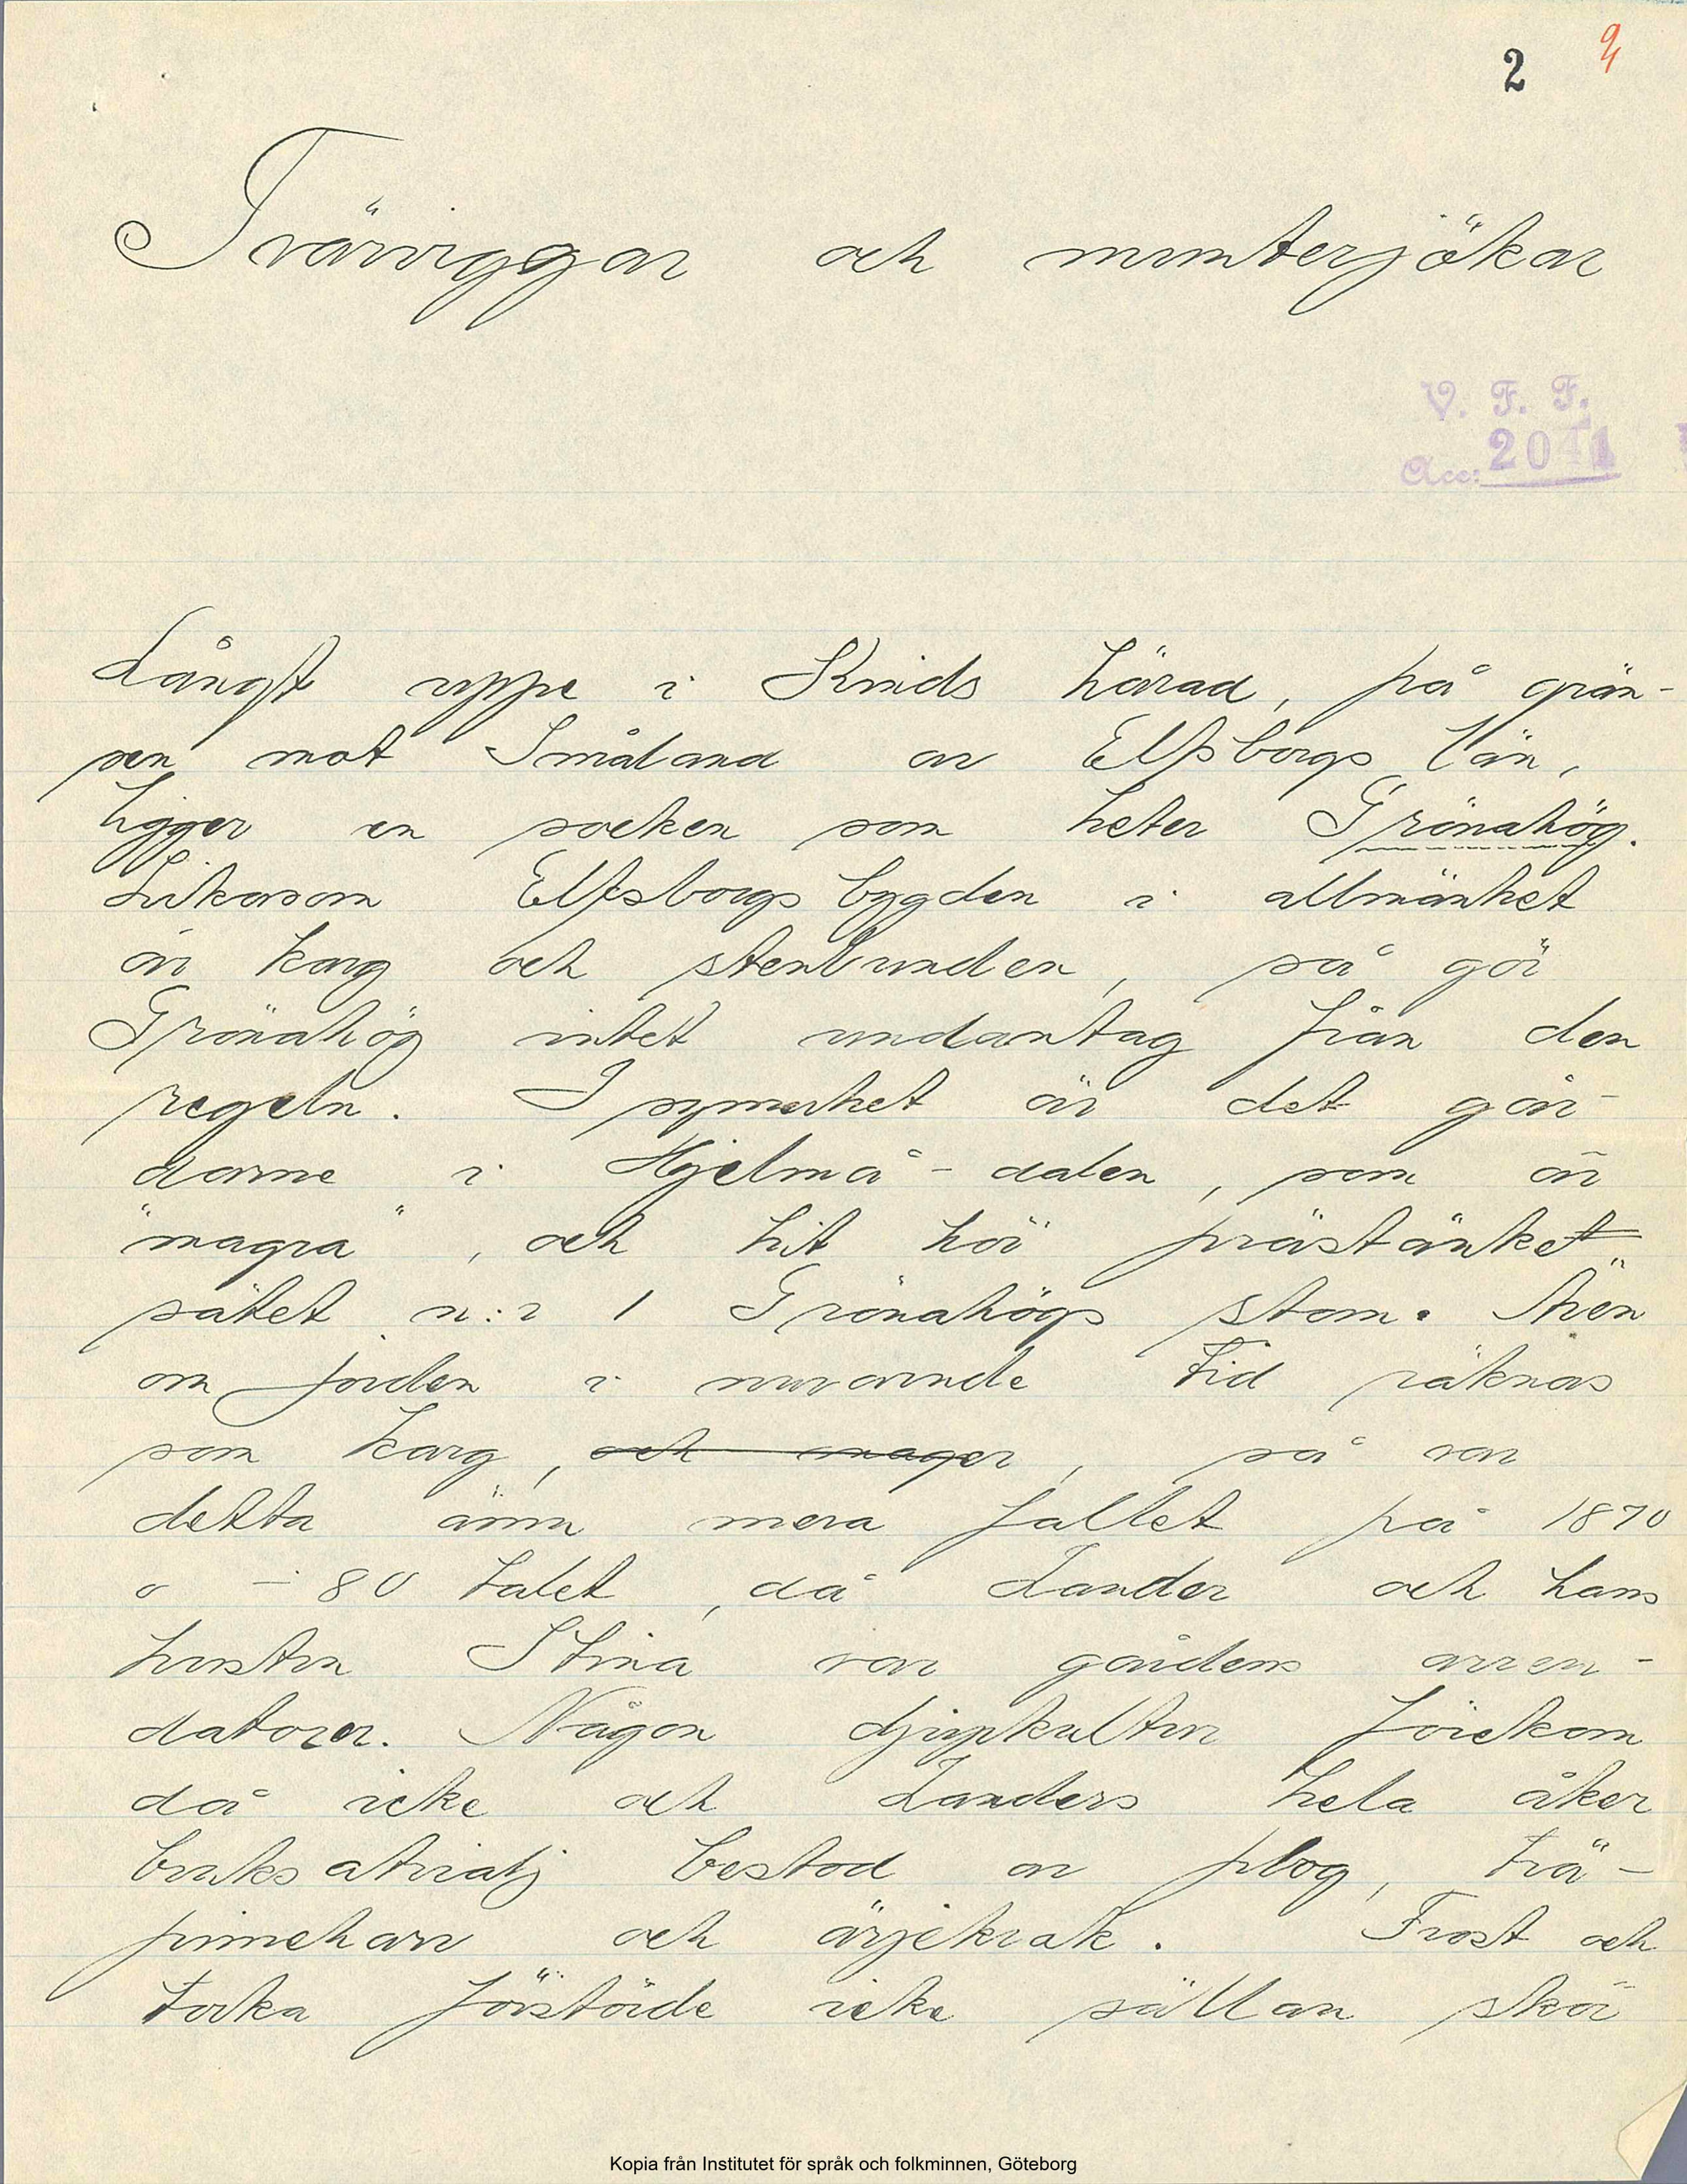 2 9/4
Tvärviggar och munterjökar
V. F. F.
Acc: 2041
Långt uppe i Kinds härad, på grän-
sen mot Småland av Elfsborgs län,
ligger en socken som heter Grönahög.
Likasom Elfsborgsbygden i allmänhet
är karg och stenbunden, så gör
Grönahög intet undantag från den
regeln. I synnerhet är det går-
darne i Hjelmå-dalen, som är
"magra", och hit hör prästänket
sätet n:r 1 Grönahögs stom. Även
om jorden i nuvarande tid räknas
som karg, och mager, så var
detta ännu mera fallet på 1870
o - 80 talet, då Lander och hans
hustru Stina var gårdens arren-
datorer. Någon djupkultur förekom
då icke och Landers hela åker
bruksatiralj bestod av plog, trä-
pinneharv och ärjekrok. Frost och
torka förstörde icke sällan skör
Kopia från Institutet för språk och folkminnen, Göteborg